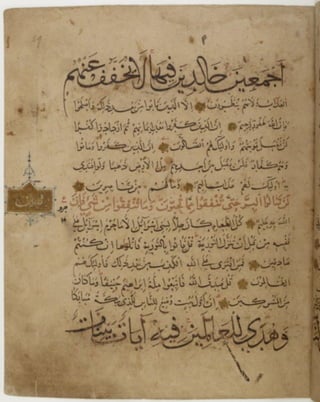 أجمعين خالدين فيها لا يخفف عنهم
العذاب ولا هم ينظرون إلا الذين تابوا من بعد ذلك وأصلحوا
فإن الله غفور رحيم إن الذين كفروا بعد إيمانهم ثم ازدادوا كفرا
لن تقبل توبتهم وأولئك هم الضالون إن الذين كفروا وماتوا
وهم كفار فلن يقبل من أحدهم ملء الأرض ذهبا ولو افتدى
به أولئك لهم عذاب أليم وما لهم من ناصرين
لن تنالوا البر حتى تنفقوا مما تحبون وما تنفقوا من شيء فإن
الله به عليم كل الطعام كان حلا لبني إسرائيل إلا ما حرم إسرائيل على
نفسه من قبل أن تنزل التوراة قل فأتوا بالتوراة فاتلوها إن كنتم
صادقين فمن افترى على الله الكذب من بعد ذلك فأولئك هم
الظالمون قل صدق الله فاتبعوا ملة إبراهيم حنيفا وما كان
من المشركين إن أول بيت وضع للناس للذي ببكة مباركا
وهدى للعالمين فيه آيات بينات